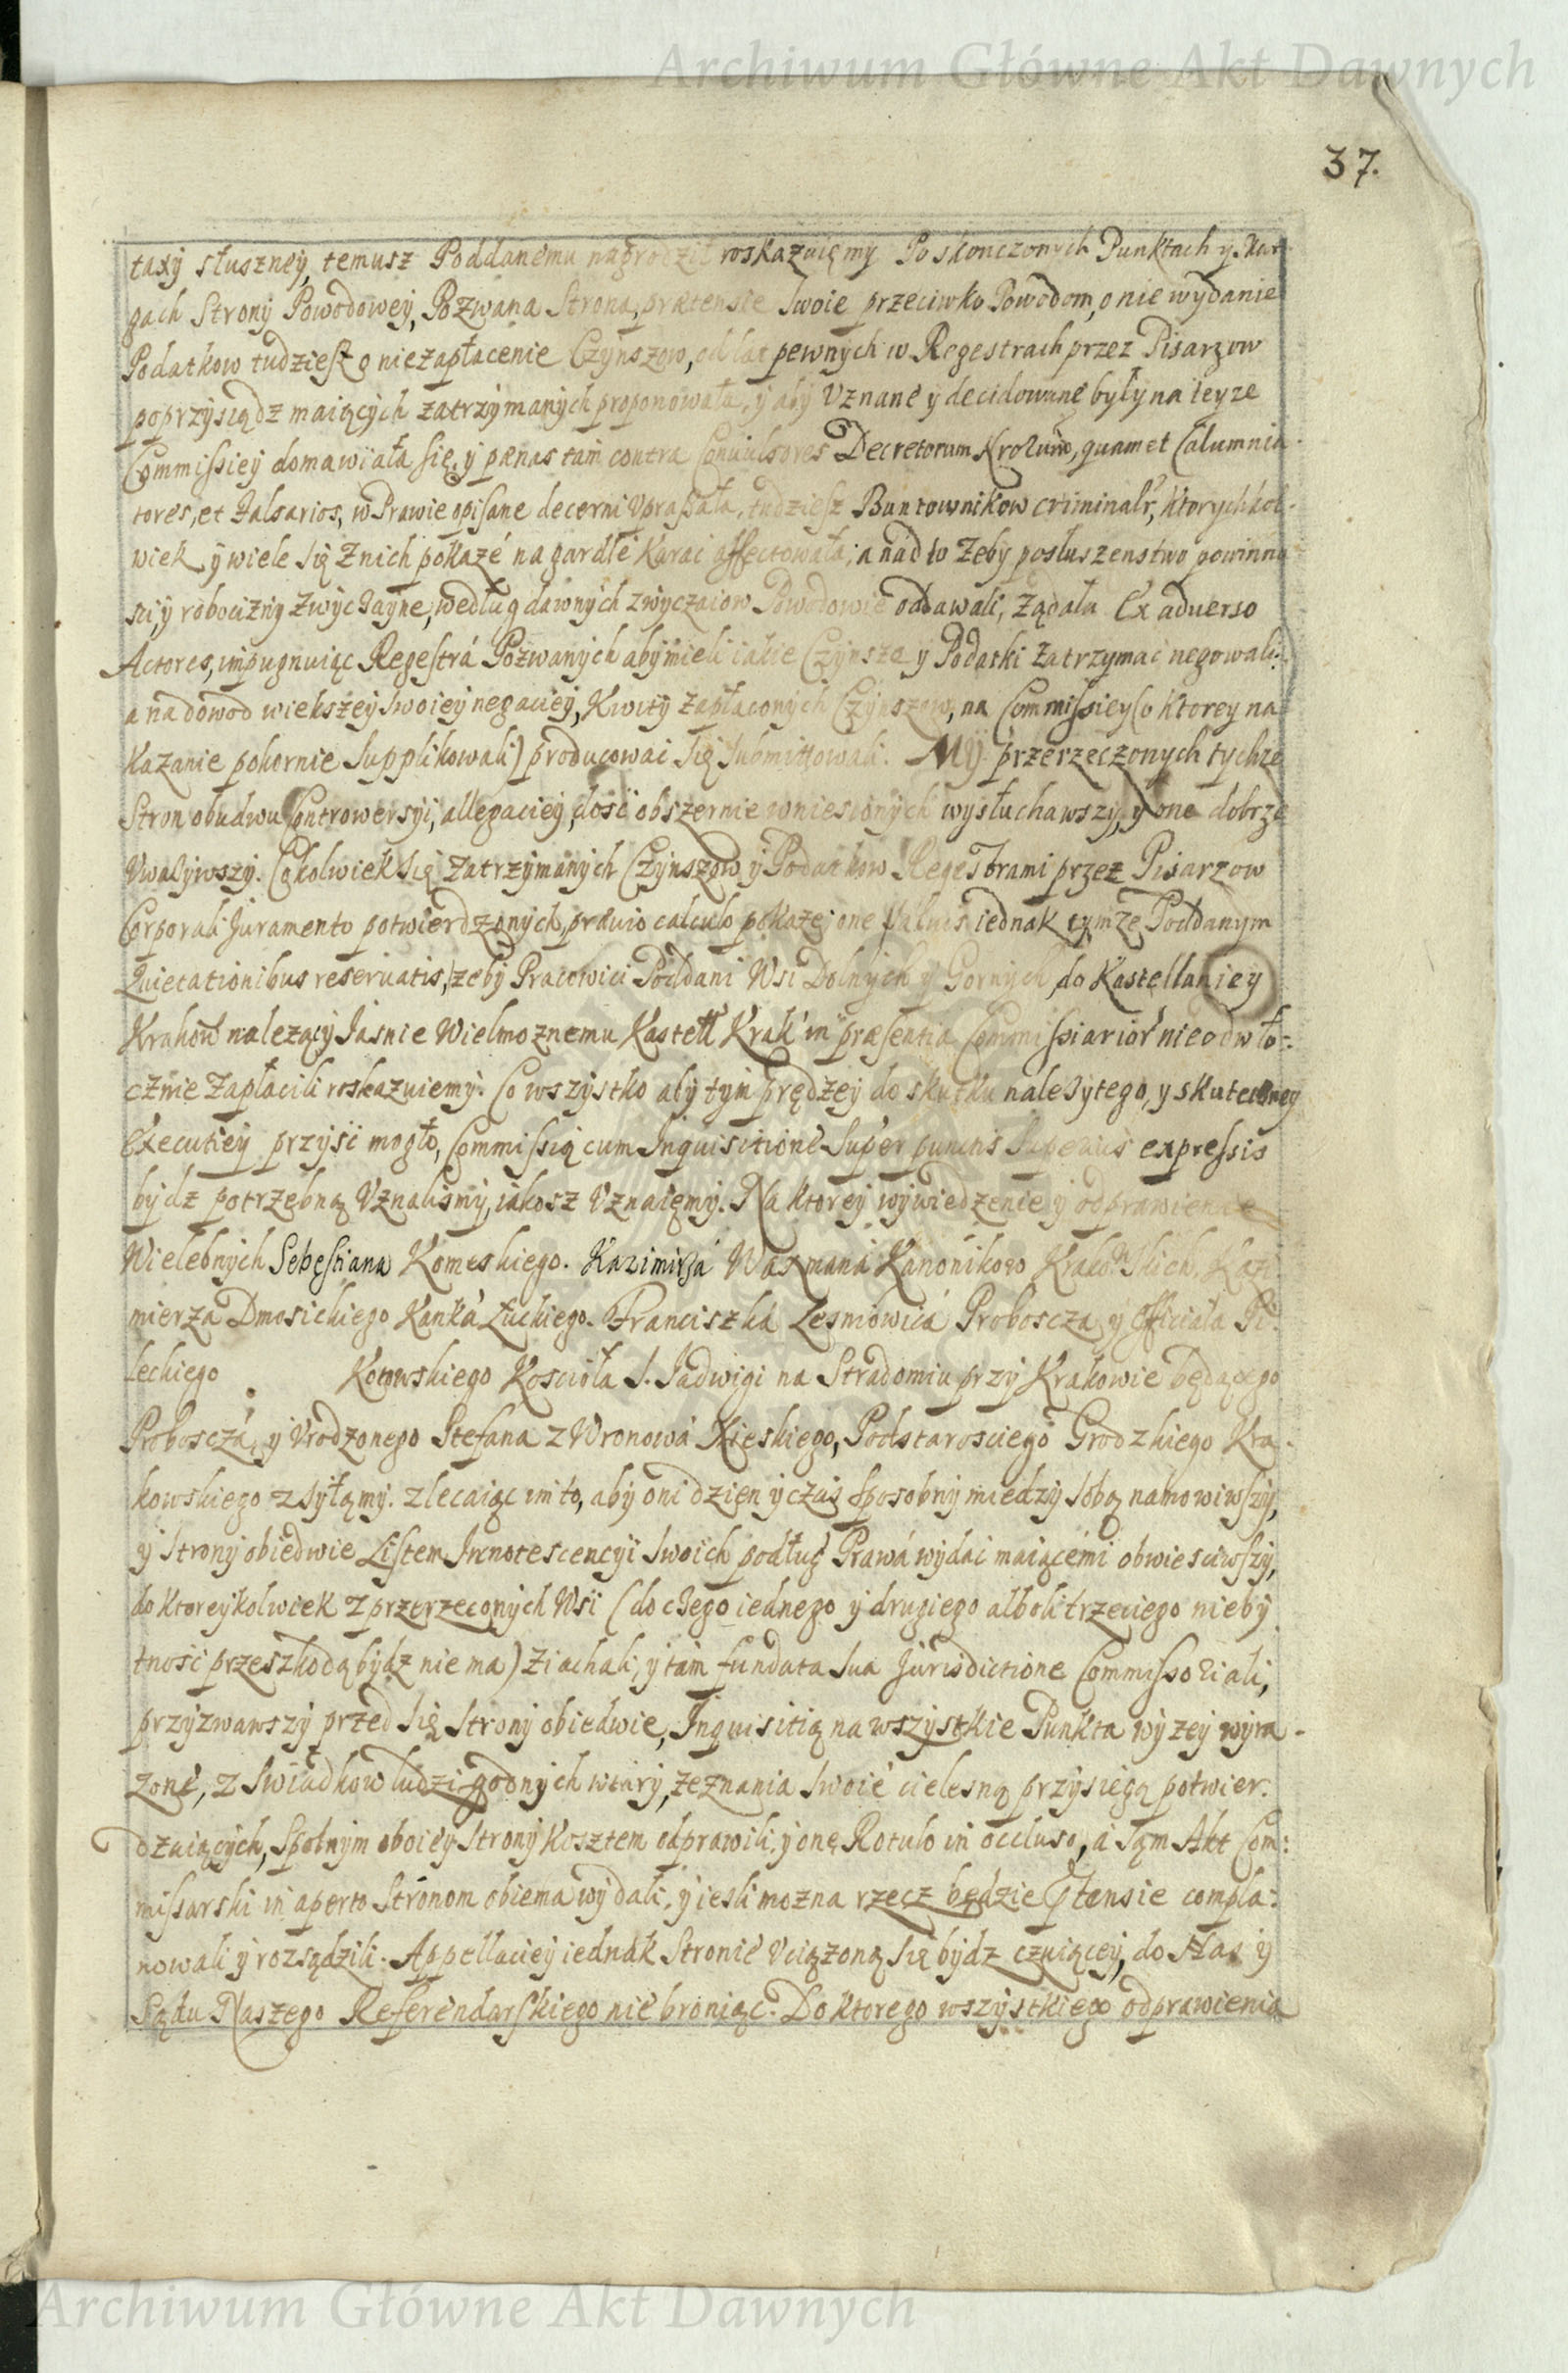 Archiwum Główne Akt Dawnych
37.
taxy słuszney, temusz Poddanemu nagrodził roskazuięmy Po skonczonych Punktach y skar
gach Strony Powodowey, Pozwana Strona, prætensie Swoie przeciwko Powodom, o nie wydanie
Podatkow tudziesz o niezapłacenie Czynszow, od lat pewnych w Regestrach przez Pisarzow
poprzysiądz maiących zatrzymanych proponowała, y aby Uznane y decidowane były na teyze
Commissiey domawiała się, y pænas tam contra Convulsores Decretorum Nrorum, quam et Calumnia-
tores, et Falsarios, w Prawie opisane decerni upraszała, tudziesz Buntownikow criminalr, ktorychkol-
wiek y wiele się z nich pokaze na gardle karac affectowała; a nad to zeby posłuszenstwo powinno
sci, y robocizny zwyczayne, według dawnych zwyczaiow Powodowie oddawali, ządała Ex adverso
Actores, impugnuiąc Regestra Pozwanych aby mieli iakie Czynsze y Podatki zatrzymac negowali:
a na dowod wiekszey Swoiey negaciey, Kwity zapłaconych Czynszow, na Commissiey (o ktorey na
kazanie pokornie Supplikowali) producowac się Submittowali. My przerzeczonych tychze
Stron obudwu Controwersyi, allegaciey, dosc obszernie wniesionych wysłuchawszy, y one dobrze
Uwazywszy. Cokolwiek się zatrzymanych Czynszow y Podatkow Regestrami przez Pisarzow
Corporali Juramento potwierdzonych, prævio calculo pokaze, one Salvis iednak tymze Poddanym
Quietationibus reservatis, zeby Pracowici Poddani Wsi Dolnych y Gornych, do Kastellaniey
Krakow nalezący Jasnie Wielmoznemu Kastell Krak in præsentia Commissiarior nieodwło-:
cznie zapłacili roskazuiemy. Co wszystko aby tym prędzey do skutku nalezytego, y skuteczney
Executiey przysc mogło, Commissią cum Inquisitione Super punctis Superius expressis
bydz potrzebną Uznalismy, iakosz Uznaięmy. Na ktorey wywiedzenie y odprawienie
Wielebnych Sebestiana Komeskiego. Kazimirza Waxmana Kanonikow Krakowskich, Kazi
mierza Dmosickiego Kanka Łuckiego. Franciszka Lesniowica Proboscza y Officiala Pi-
leckiego Kotowskiego Koscioła S. Jadwigi na Stradomiu przy Krakowie będącego
Proboscza, y Urodzonego Stefana z Wronowa Xięskiego, Podstarosciego Grodzkiego Kra-
kowskiego zsyłąmy. zlecaiąc im to, aby oni dzien y czas Sposobny miedzy sobą namowiwszy,
y Strony obiedwie Listem Innotescencyi Swoich podług Prawa wydac maiącemi obwiesciwszy,
do ktoreykolwiek z przerzeconych Wsi (do czego iednego y drugiego alboli trzeciego nieby
tnosc przeszkodą bydz nie ma) ziachali, y tam fundata Sua Jurisdictione Commissoriali,
przyzwawszy przed się Strony obiedwie, Inquisitią na wszystkie Punkta wyzey wyra-
zone, z Swiadkow ludzi godnych wiary, zeznania Swoie cielesną przysiegą potwier-
dzaiących, Społnym oboiey Strony kosztem odprawili, y onę Rotulo in occluso, a sąm Akt Com:
missarski in aperto Stronom obiema wydali, y iesli mozna rzecz będzie Ptensie compla:
nowali y rozsądzili. Appellaciey iednak Stronie Uciązoną się bydz czuiącey, do Nas y
Sądu Naszego Referendarskiego nie broniąc. Do ktorego wszystkiego odprawienia
Archiwum Główne Akt Dawnych